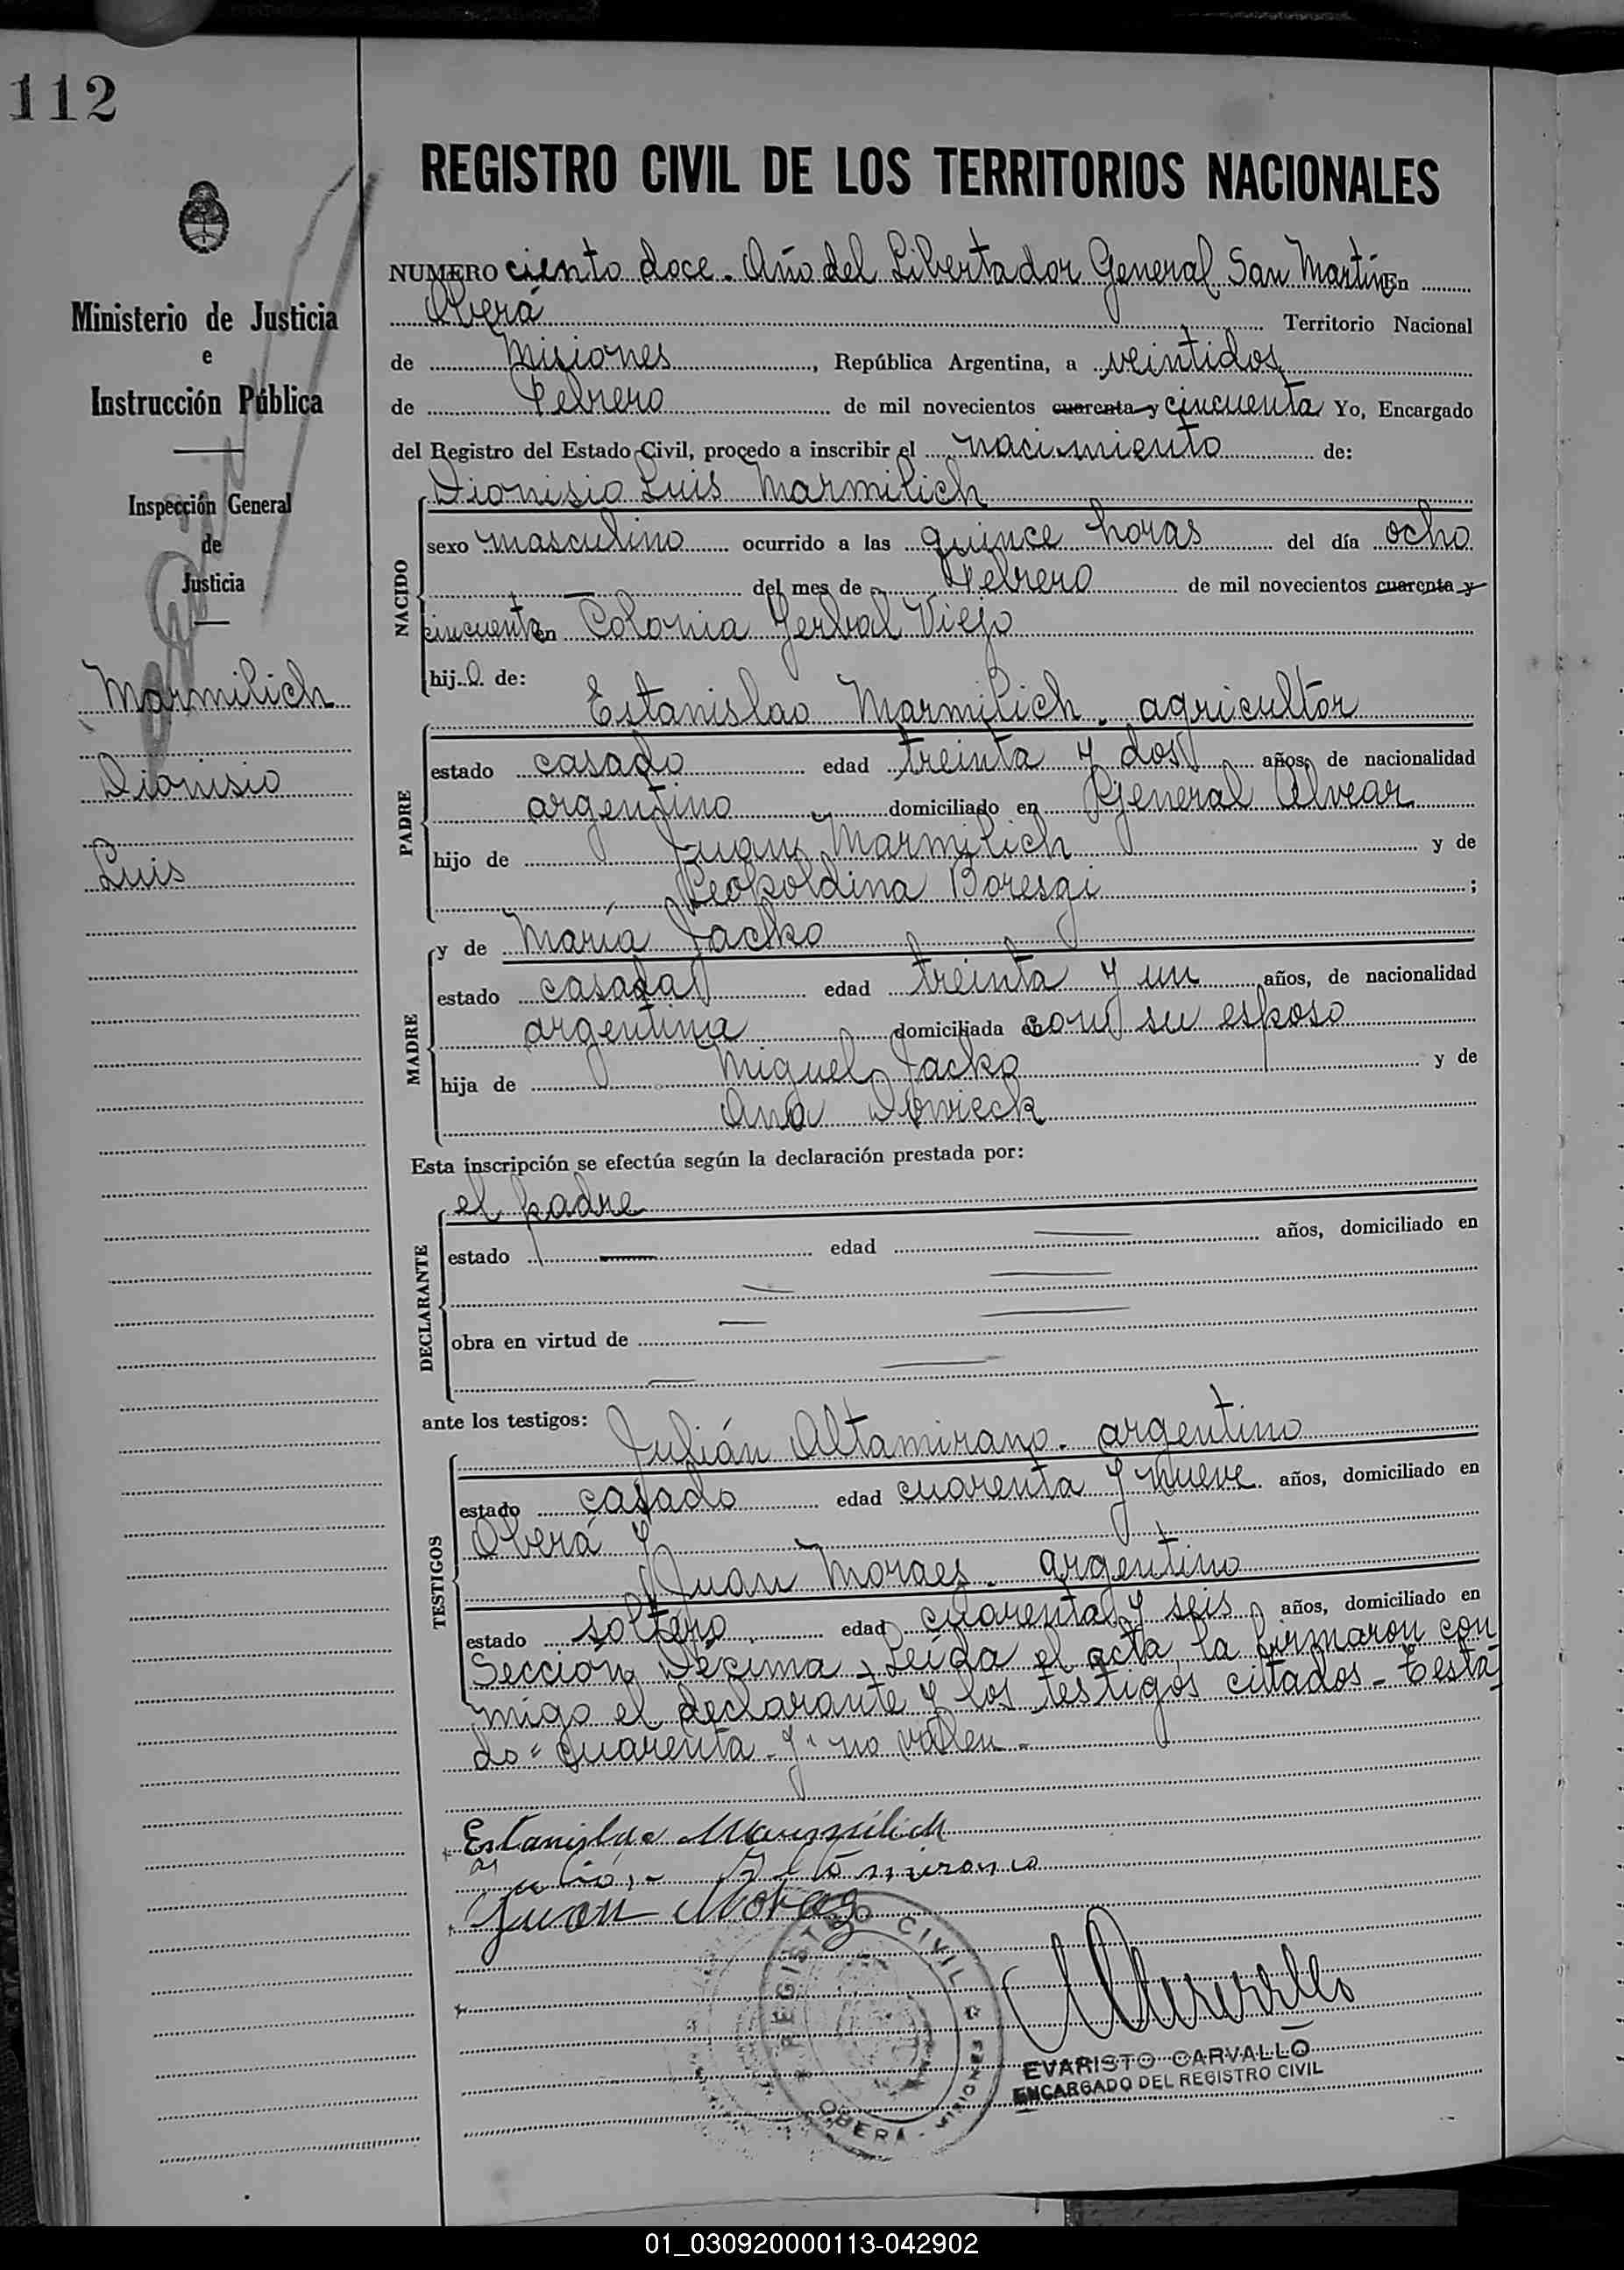 112
REGISTRO CIVIL DE LOS TERRITORIOS NACIONALES
Ministerio de Justicia
e
Instrucción Pública
Inspección General
de
Justicia
Marmilich
Dionisio
Luis
NUMERO ciento doce. Año del Libertador General San Martín En
Oberá Territorio Nacional
de Misiones, República Argentina, a veintidos
de Febrero de mil novecientos cuarenta y cincuenta Yo, Encargado
del Registro del Estado Civil, procedo a inscribir el nacimiento de:
NACIDO
Dionisio Luis Marmilich
sexo masculino ocurrido a las quince horas del día ocho
del mes de Febrero de mil novecientos cuarenta y
cincuenta en Colonia Yerbal Viejo
hijo de:
PADRE
Estanislao Marmilich. agricultor
estado casado edad treinta y dos años, de nacionalidad
argentino domiciliado en General Alvear
hijo de Juan Marmilich y de
Leopoldina Boresgi;
MADRE
y de María Jacko
estado casada edad treinta y un años, de nacionalidad
argentina domiciliada en con su esposo
hija de Miguel Jacko y de
Ana
Esta inscripción se efectúa según la declaración prestada por:
DECLARANTE
el padre
estado — edad — años, domiciliado en
obra en virtud de
ante los testigos:
TESTIGOS
Julián Altamirano. argentino
estado casado edad cuarenta y nueve años, domiciliado en
Oberá y
Juan Moraes. argentino
estado soltero edad cuarenta y seis años, domiciliado en
Sección Décima. Leída el acta, la firmaron con
migo el declarante y los testigos citados - Testa
do "cuarenta y" no valen -
Estanislao Marmilich
Julián Altamirano
Juan Moraes
REGISTRO CIVIL
OBERA - MISIONES
EVARISTO CARVALLO
ENCARGADO DEL REGISTRO CIVIL
01_030920000113-042902